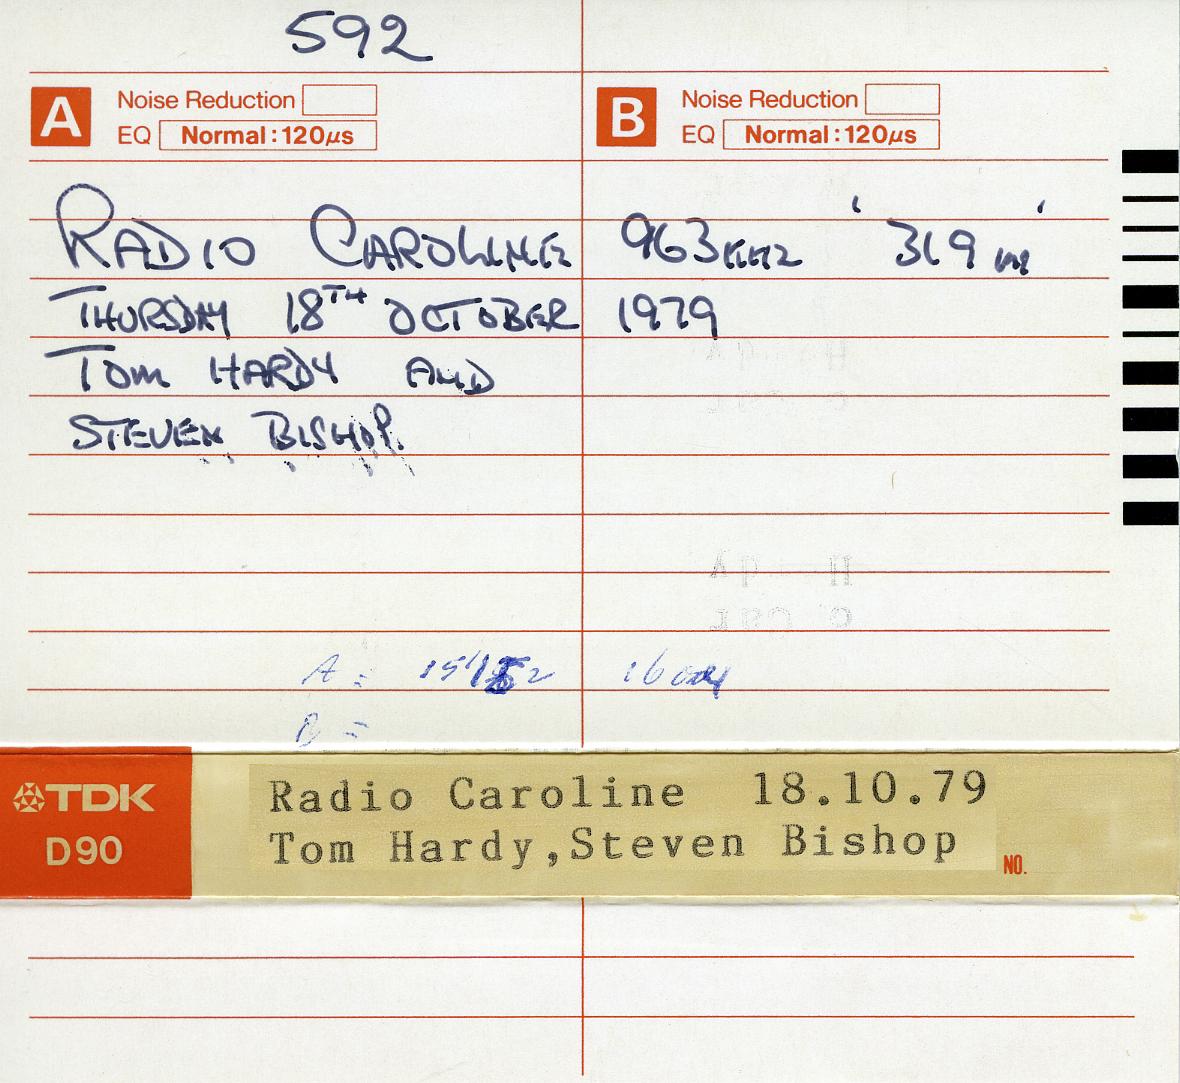 592
A Noise Reduction
EQ Normal:120µs
B Noise Reduction
EQ Normal:120µs
RADIO CAROLINE 963KHZ ' 319 m '
THURSDAY 18TH OCTOBER 1979
TOM HARDY AND
STEVEN BISHOP.
A =
B =
TDK
D90
Radio Caroline 18.10.79
Tom Hardy,Steven Bishop
NO.